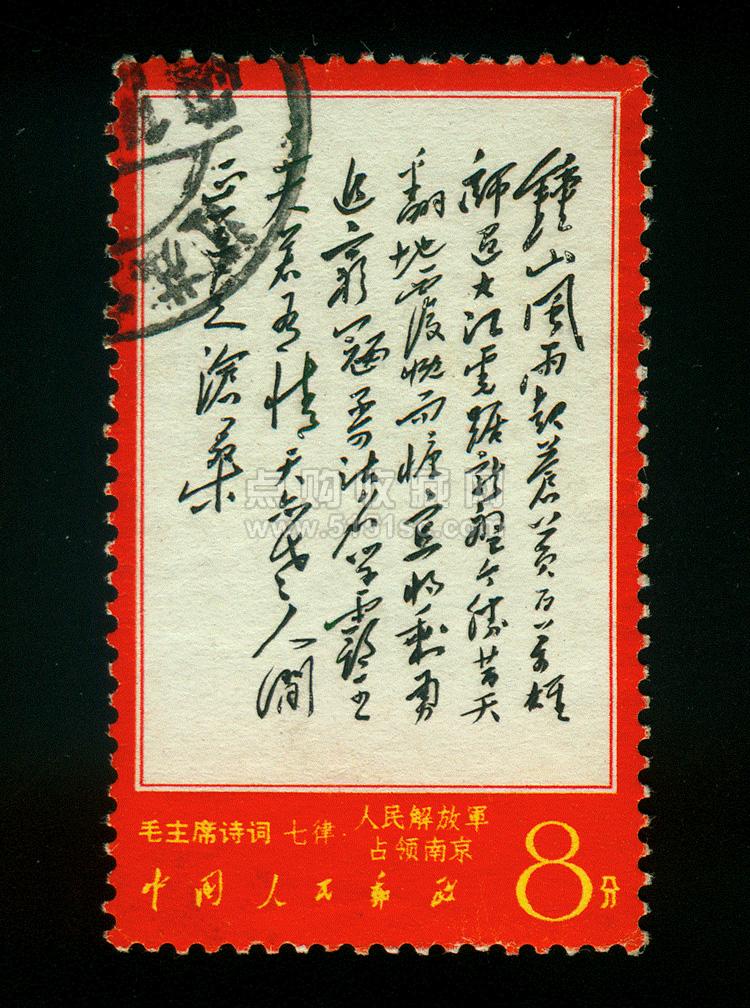 鐘山風雨起蒼黃百萬雄
師过大江虎踞龍盤今勝昔天
翻地覆慨而慷宜將剩勇
追窮寇不可沽名学霸王
天若有情天亦老人間
正道是滄桑
点购收藏网
毛主席诗词 七律·人民解放軍
占领南京
中国人民邮政
8分